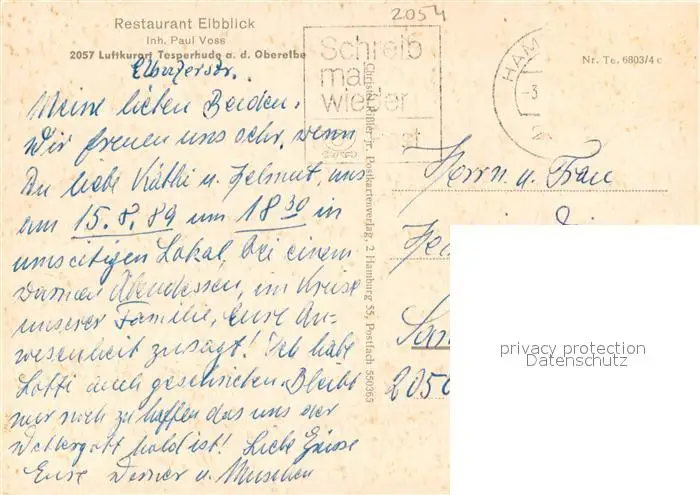 2054
Restaurant Elbblick
Inh. Paul Voss
2057 Luftkurort Tesperhude a. d. Oberelbe
Elbuferstr.
Meine lieben Beiden.
Wir freuen uns sehr, wenn
Du liebe Käthi u. Helmut, uns
am 15.8.89 um 18 30 in
umseitigen Lokal, bei einem
warmen Abendessen, im Kreise
unserer Familie, Eure An-
wesenheit zusagt! Ich habe
Lotti auch geschrieben. Bleibt
nur noch zu hoffen das uns der
Wettergott hold ist! Liebe Grüsse
Eure Werner u. Muschen
Schreib
mal
wieder
Post
HAM
-3.
Nr. Te. 6803/4 c
Postkartenverlag, 2 Hamburg 55, Postfach 550365
Herrn u. Frau
205
privacy protection
Datenschutz